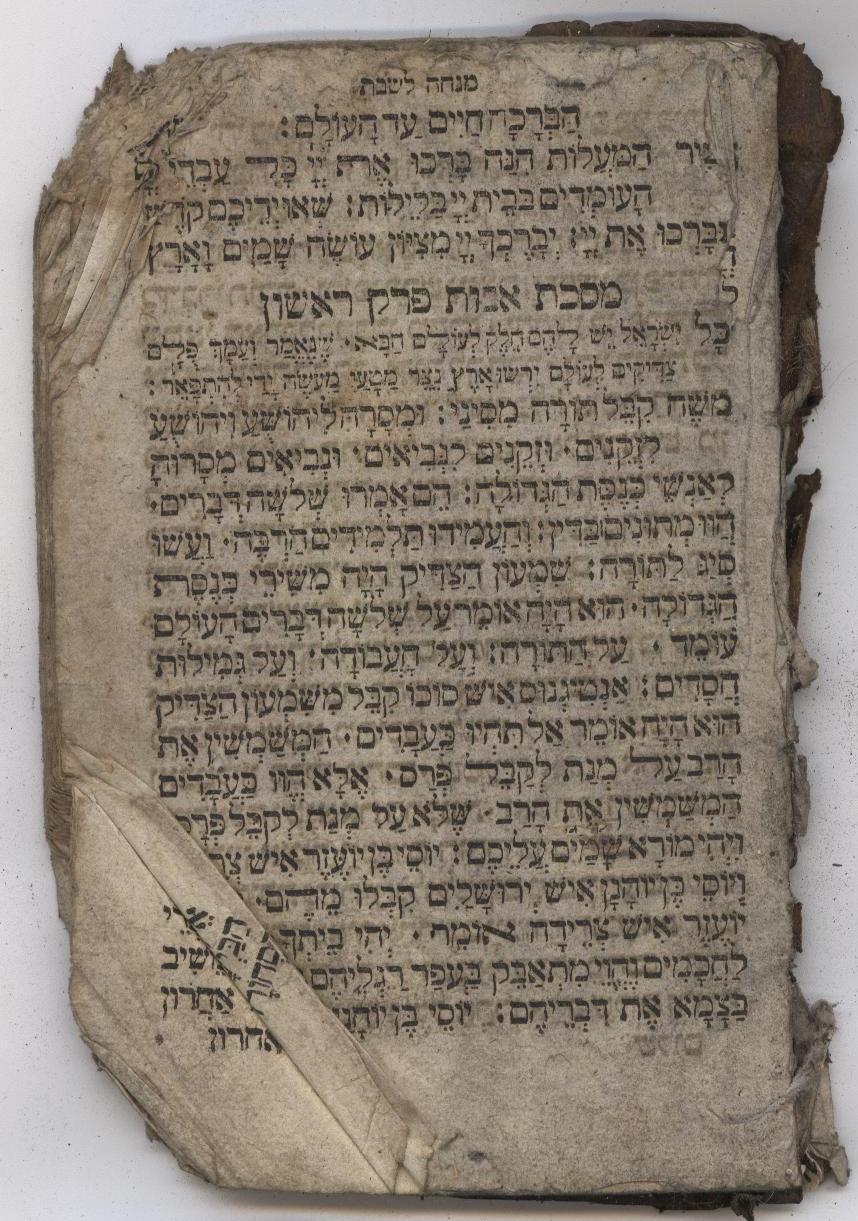 מנחה לשבת
הַבְּרָכָה חַיִּים עַד הָעוֹלָם :
שִׁיר הַמַּעֲלוֹת הִנֵּה בָּרְכוּ אֶת יְיָ כָּל עַבְדֵי יְיָ
הָעוֹמְדִים בְּבֵית יְיָ בַּלֵּילוֹת : שְׂאוּ יְדֵיכֶם קֹדֶשׁ
וּבָרְכוּ אֶת יְיָ : יְבָרֶכְךָ יְיָ מִצִּיּוֹן עוֹשֶׂה שָׁמַיִם וָאָרֶץ
מסכת אבות פרק ראשון
כָּל יִשְׂרָאֵל יֵשׁ לָהֶם חֵלֶק לְעוֹלָם הַבָּא · שֶׁנֶּאֱמַר וְעַמֵּךְ כֻּלָּם
צַדִּיקִים לְעוֹלָם יִרְשׁוּ אָרֶץ נֵצֶר מַטָּעַי מַעֲשֵׂה יָדַי לְהִתְפָּאֵר :
מֹשֶׁה קִבֵּל תּוֹרָה מִסִּינַי : וּמְסָרָהּ לִיהוֹשֻׁעַ וִיהוֹשֻׁעַ
לִזְקֵנִים · וּזְקֵנִים לִנְבִיאִים · וּנְבִיאִים מְסָרוּהָ
לְאַנְשֵׁי כְנֶסֶת הַגְּדוֹלָה : הֵם אָמְרוּ שְׁלשָׁה דְּבָרִים ·
הֱווּ מְתוּנִים בַּדִּין : וְהַעֲמִידוּ תַּלְמִידִים הַרְבֵּה · וַעֲשׂוּ
סְיָג לַתּוֹרָה : שִׁמְעוֹן הַצַּדִּיק הָיָה מִשְּׁיָרֵי כְּנֶסֶת
הַגְּדוֹלָה · הוּא הָיָה אוֹמֵר עַל שְׁלשָׁה דְּבָרִים הָעוֹלָם
עוֹמֵד · עַל הַתּוֹרָה : וְעַל הָעֲבוֹדָה · וְעַל גְּמִילוּת
חֲסָדִים : אַנְטִיגְנוֹס אִישׁ סוֹכוֹ קִבֵּל מִשִּׁמְעוֹן הַצַּדִּיק
הוּא הָיָה אוֹמֵר אַל תִּהְיוּ כַּעֲבָדִים · הַמְשַׁמְּשִׁין אֶת
הָרַב עַל מְנָת לְקַבֵּל פְּרָס · אֶלָּא הֱווּ כַּעֲבָדִים
הַמְשַׁמְּשִׁין אֶת הָרַב · שֶׁלֹּא עַל מְנָת לְקַבֵּל פְּרָס
וִיהִי מוֹרָא שָׁמַיִם עֲלֵיכֶם : יוֹסֵי בֶּן יוֹעֶזֶר אִישׁ
וְיוֹסֵי בֶּן יוֹחָנָן אִישׁ יְרוּשָׁלַיִם קִבְּלוּ מֵהֶם ·
יוֹעֶזֶר אִישׁ צְרֵידָה אוֹמֵר · יְהִי בֵיתְךָ
לַחֲכָמִים וֶהֱוֵי מִתְאַבֵּק בַּעֲפַר רַגְלֵיהֶם
בַּצָּמָא אֶת דִּבְרֵיהֶם : יוֹסֵי בֶּן אַחֲרוֹן
אחרון